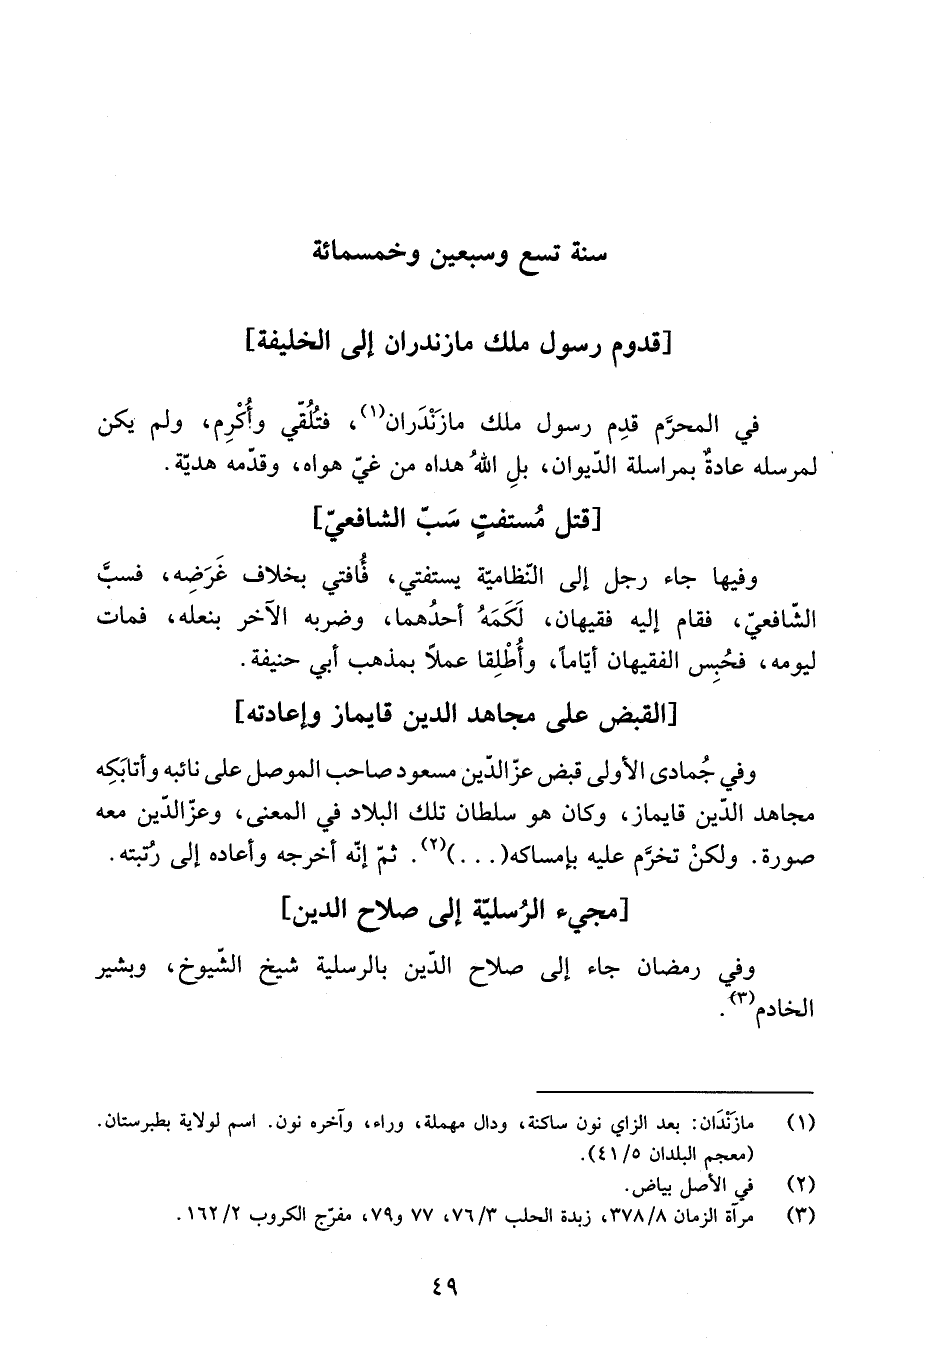 سنة تسع وسبعين وخمسمائة
[قدوم رسول ملك مازندران إلى الخليفة]
في المحرَّم قدِم رسول ملك مازَنْدَران(١)، فتُلُقّي وأُكْرِم، ولم يكن
لمرسله عادةٌ بمراسلة الدّيوان، بلِ اللهُ هداه من غيّ هواه، وقدّمه هديّة.
[قتل مُستفتٍ سَبّ الشافعيّ]
وفيها جاء رجل إلى النّظاميّة يستفتي، فُأفتي بخلاف غَرَضِه، فسبَّ
الشّافعيّ، فقام إليه فقيهان، لَكَمَهُ أحدُهما، وضربه الآخر بنعله، فمات
ليومه، فحُبِس الفقيهان أيّاماً، وأُطْلِقا عملاً بمذهب أبي حنيفة.
[القبض على مجاهد الدين قايماز وإعادته]
وفي جُمادى الأولى قبض عزّالدّين مسعود صاحب الموصل على نائبه وأتابَكِه
مجاهد الدّين قايماز، وكان هو سلطان تلك البلاد في المعنى، وعزّالدّين معه
صورة. ولكنْ تخرَّم عليه بإمساكه(. . .)(٢). ثمّ إنّه أخرجه وأعاده إلى رُتبته.
[مجيء الرُسليّة إلى صلاح الدين]
وفي رمضان جاء إلى صلاح الدّين بالرسلية شيخ الشّيوخ، وبشير
الخادم(٣).
(١) مازَنْدَان: بعد الزاي نون ساكنة، ودال مهملة، وراء، وآخره نون. اسم لولاية بطبرستان.
(معجم البلدان ٤١/٥).
(٢) في الأصل بياض.
(٣) مرآة الزمان ٣٧٨/٨، زبدة الحلب ٧٦/٣، ٧٧ و٧٩، مفرّج الكروب ١٦٢/٢.
٤٩